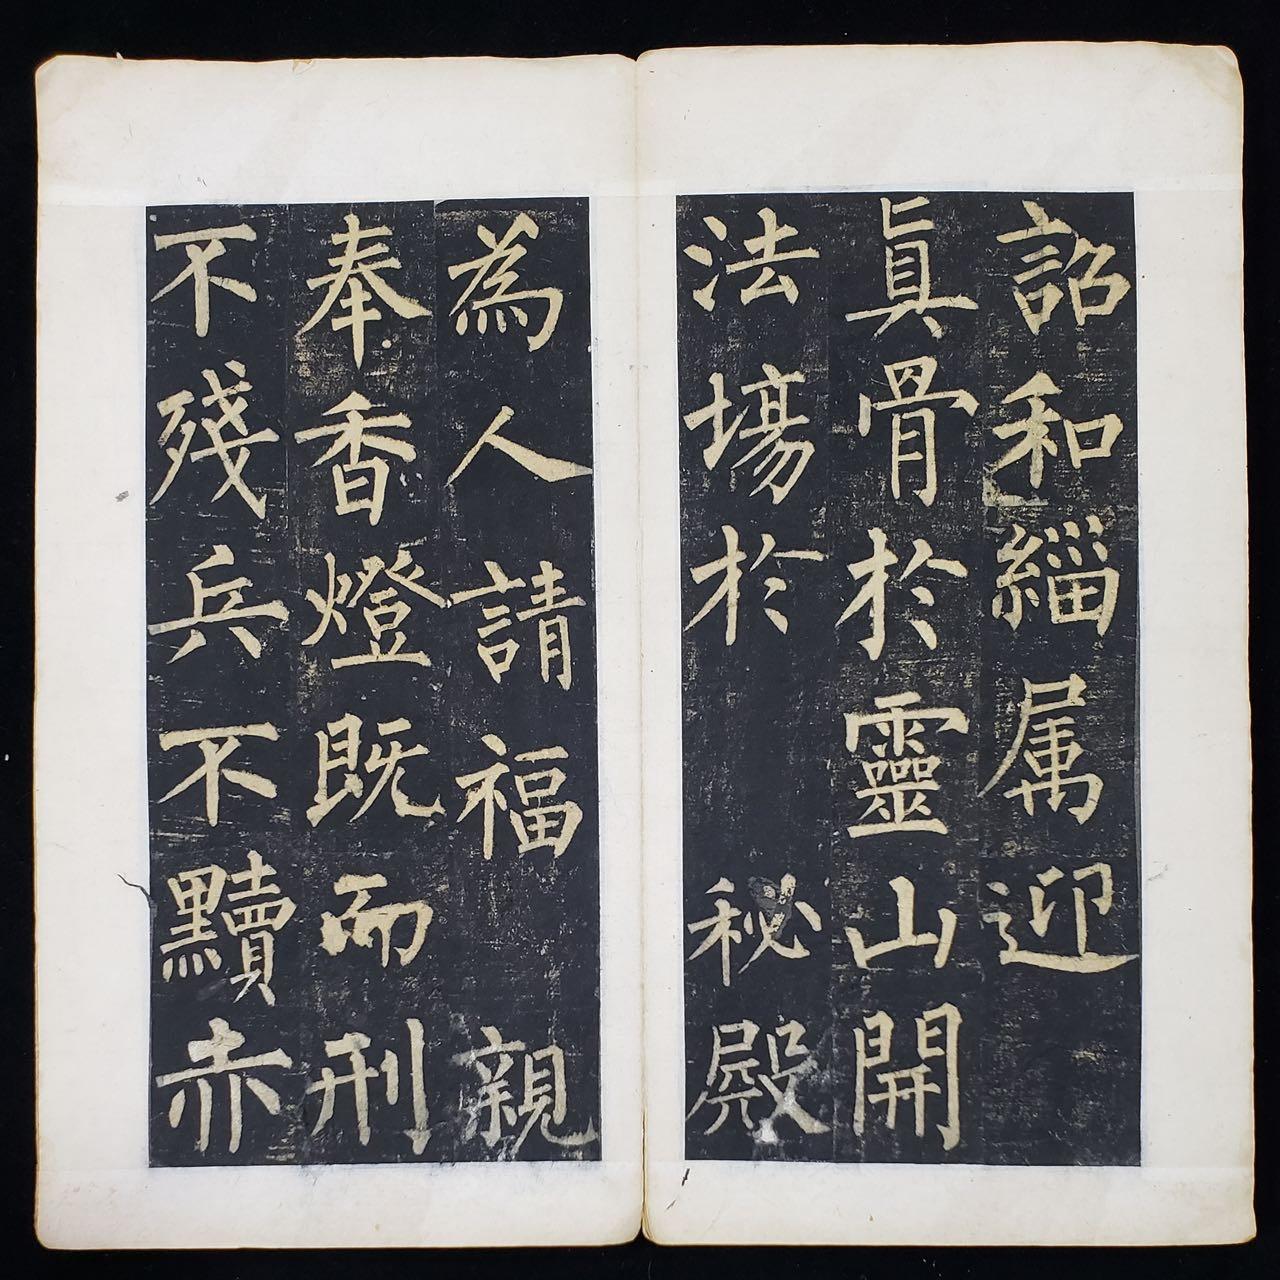 詔和緇属迎
真骨於靈山開
法場於秘殿
為人請福親
奉香燈既而刑
不殘兵不黷赤